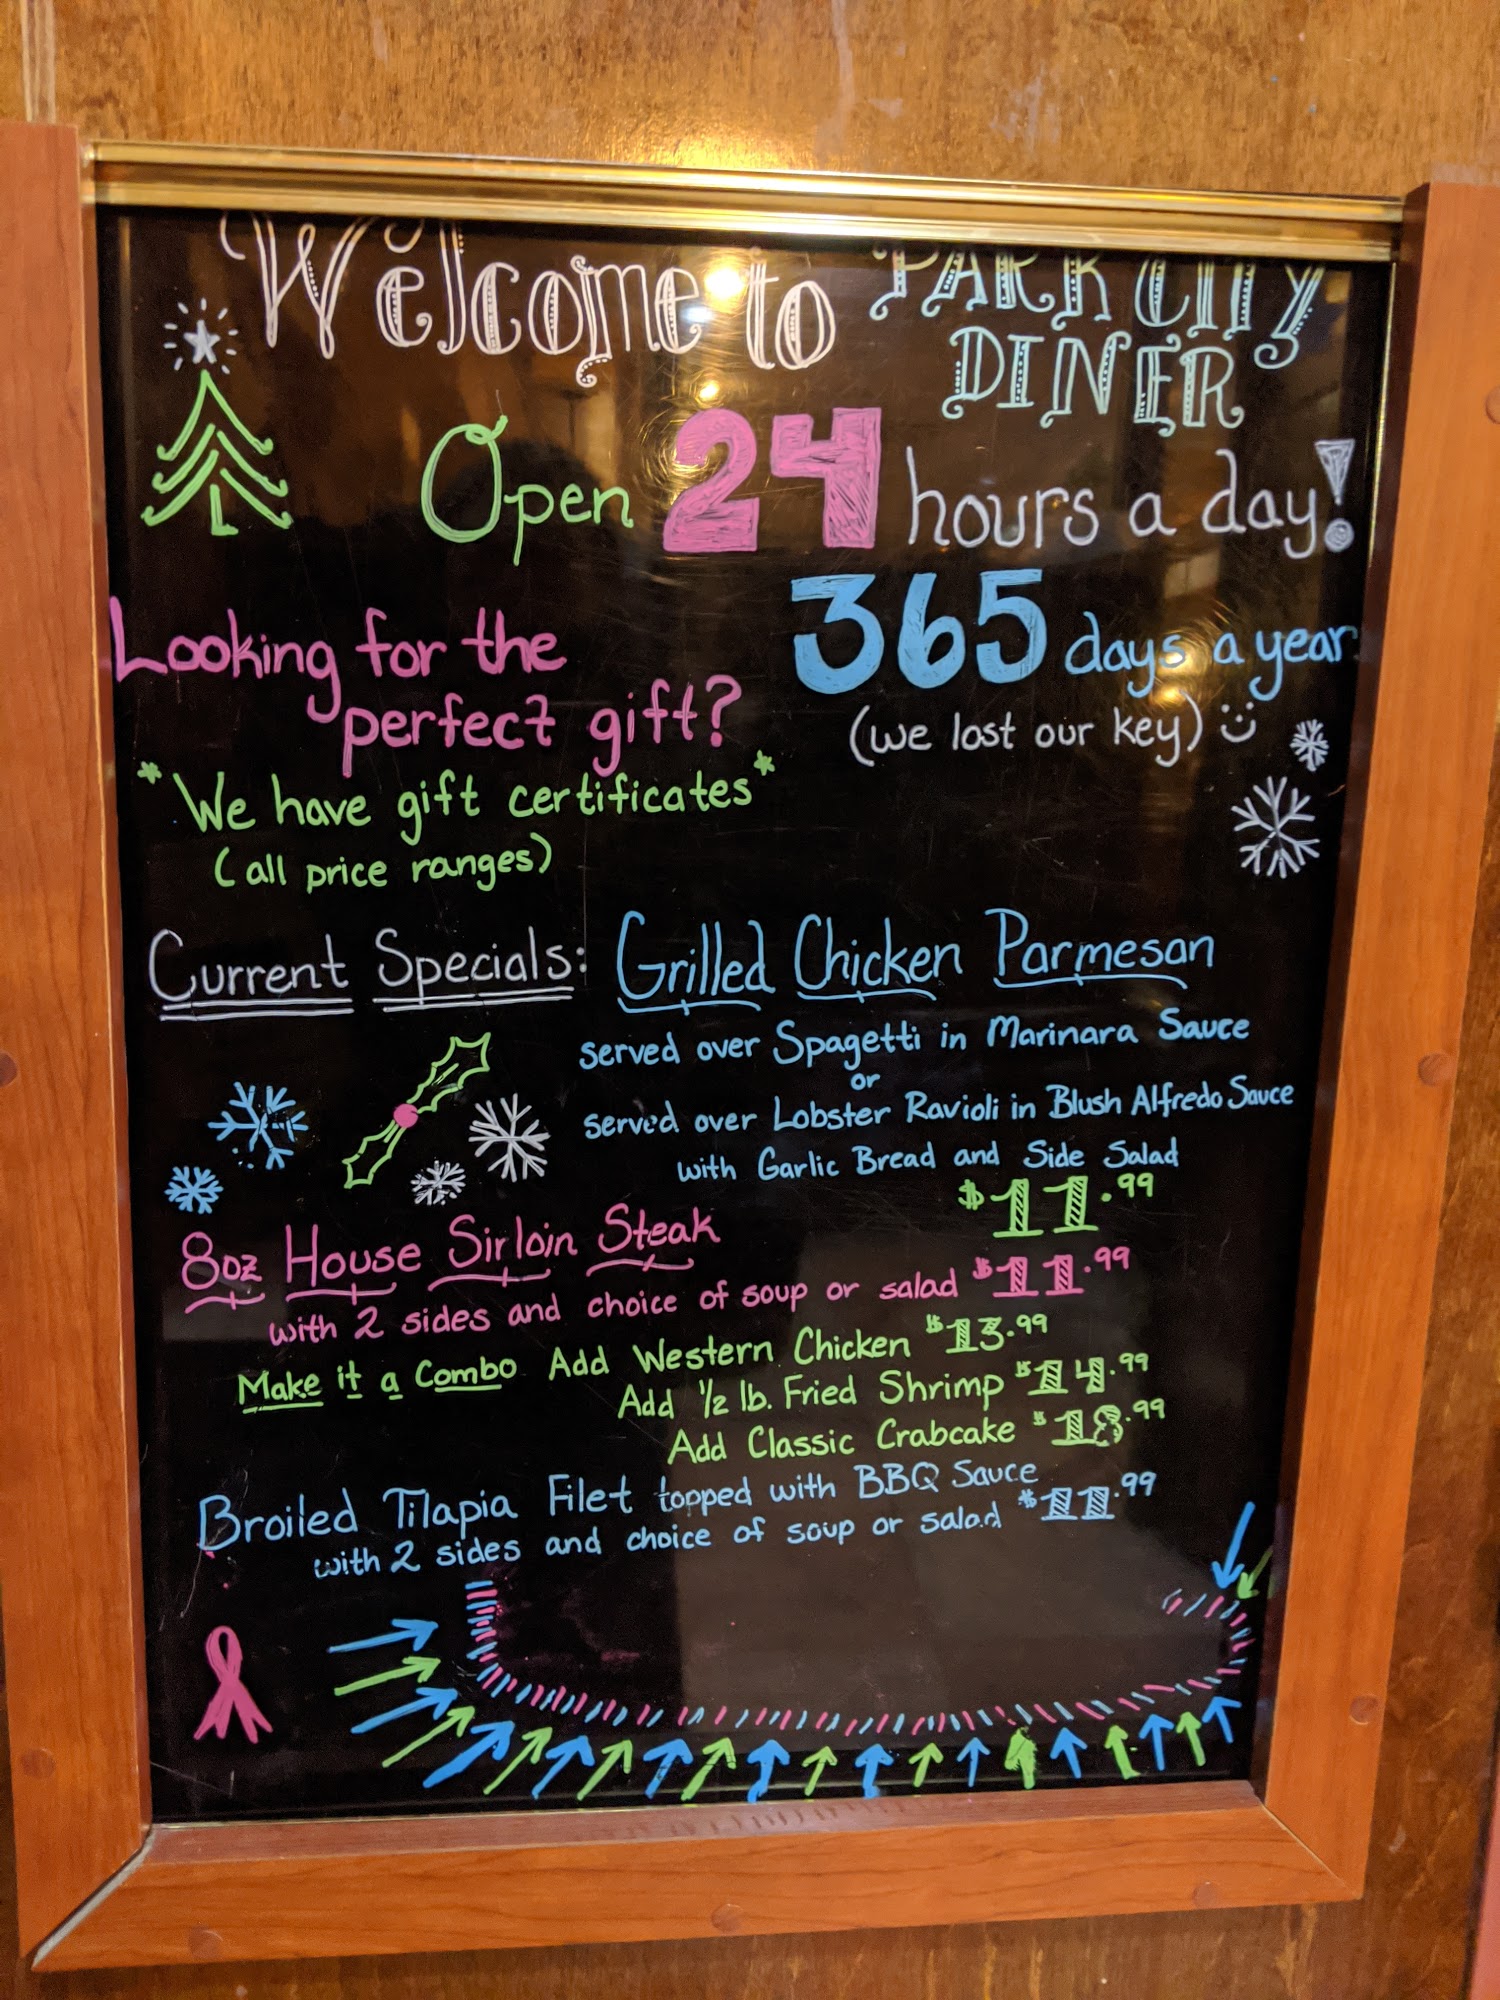 Welcome to PARK CITY
DINER
Open 24 hours a day!
365 days a year
(we lost our key)
Looking for the
perfect gift?
*We have gift certificates*
(all price ranges)
Current Specials: Grilled Chicken Parmesan
served over Spagetti in Marinara Sauce
or
served over Lobster Ravioli in Blush Alfredo Sauce
with Garlic Bread and Side Salad
$11.99
8oz House Sirloin Steak
with 2 sides and choice of soup or salad $11.99
Make it a Combo Add Western Chicken $13.99
Add ½ lb. Fried Shrimp $14.99
Add Classic Crabcake $18.99
Broiled Tilapia Filet topped with BBQ Sauce
with 2 sides and choice of soup or salad $11.99